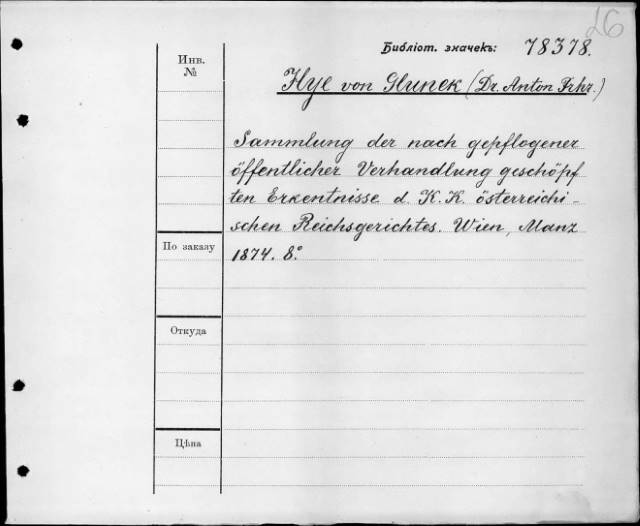 26
Библіот. значекъ: 78378.
Инв.
№
Hye von Glunek (Dr. Anton Frhr.)
Sammlung der nach gepflogener
öffentlicher Verhandlung geschöpf
ten Erkentnisse d. K. K. österreichi-
schen Reichsgerichtes. Wien, Manz
По заказу
1874. 8º
Откуда
Цѣна